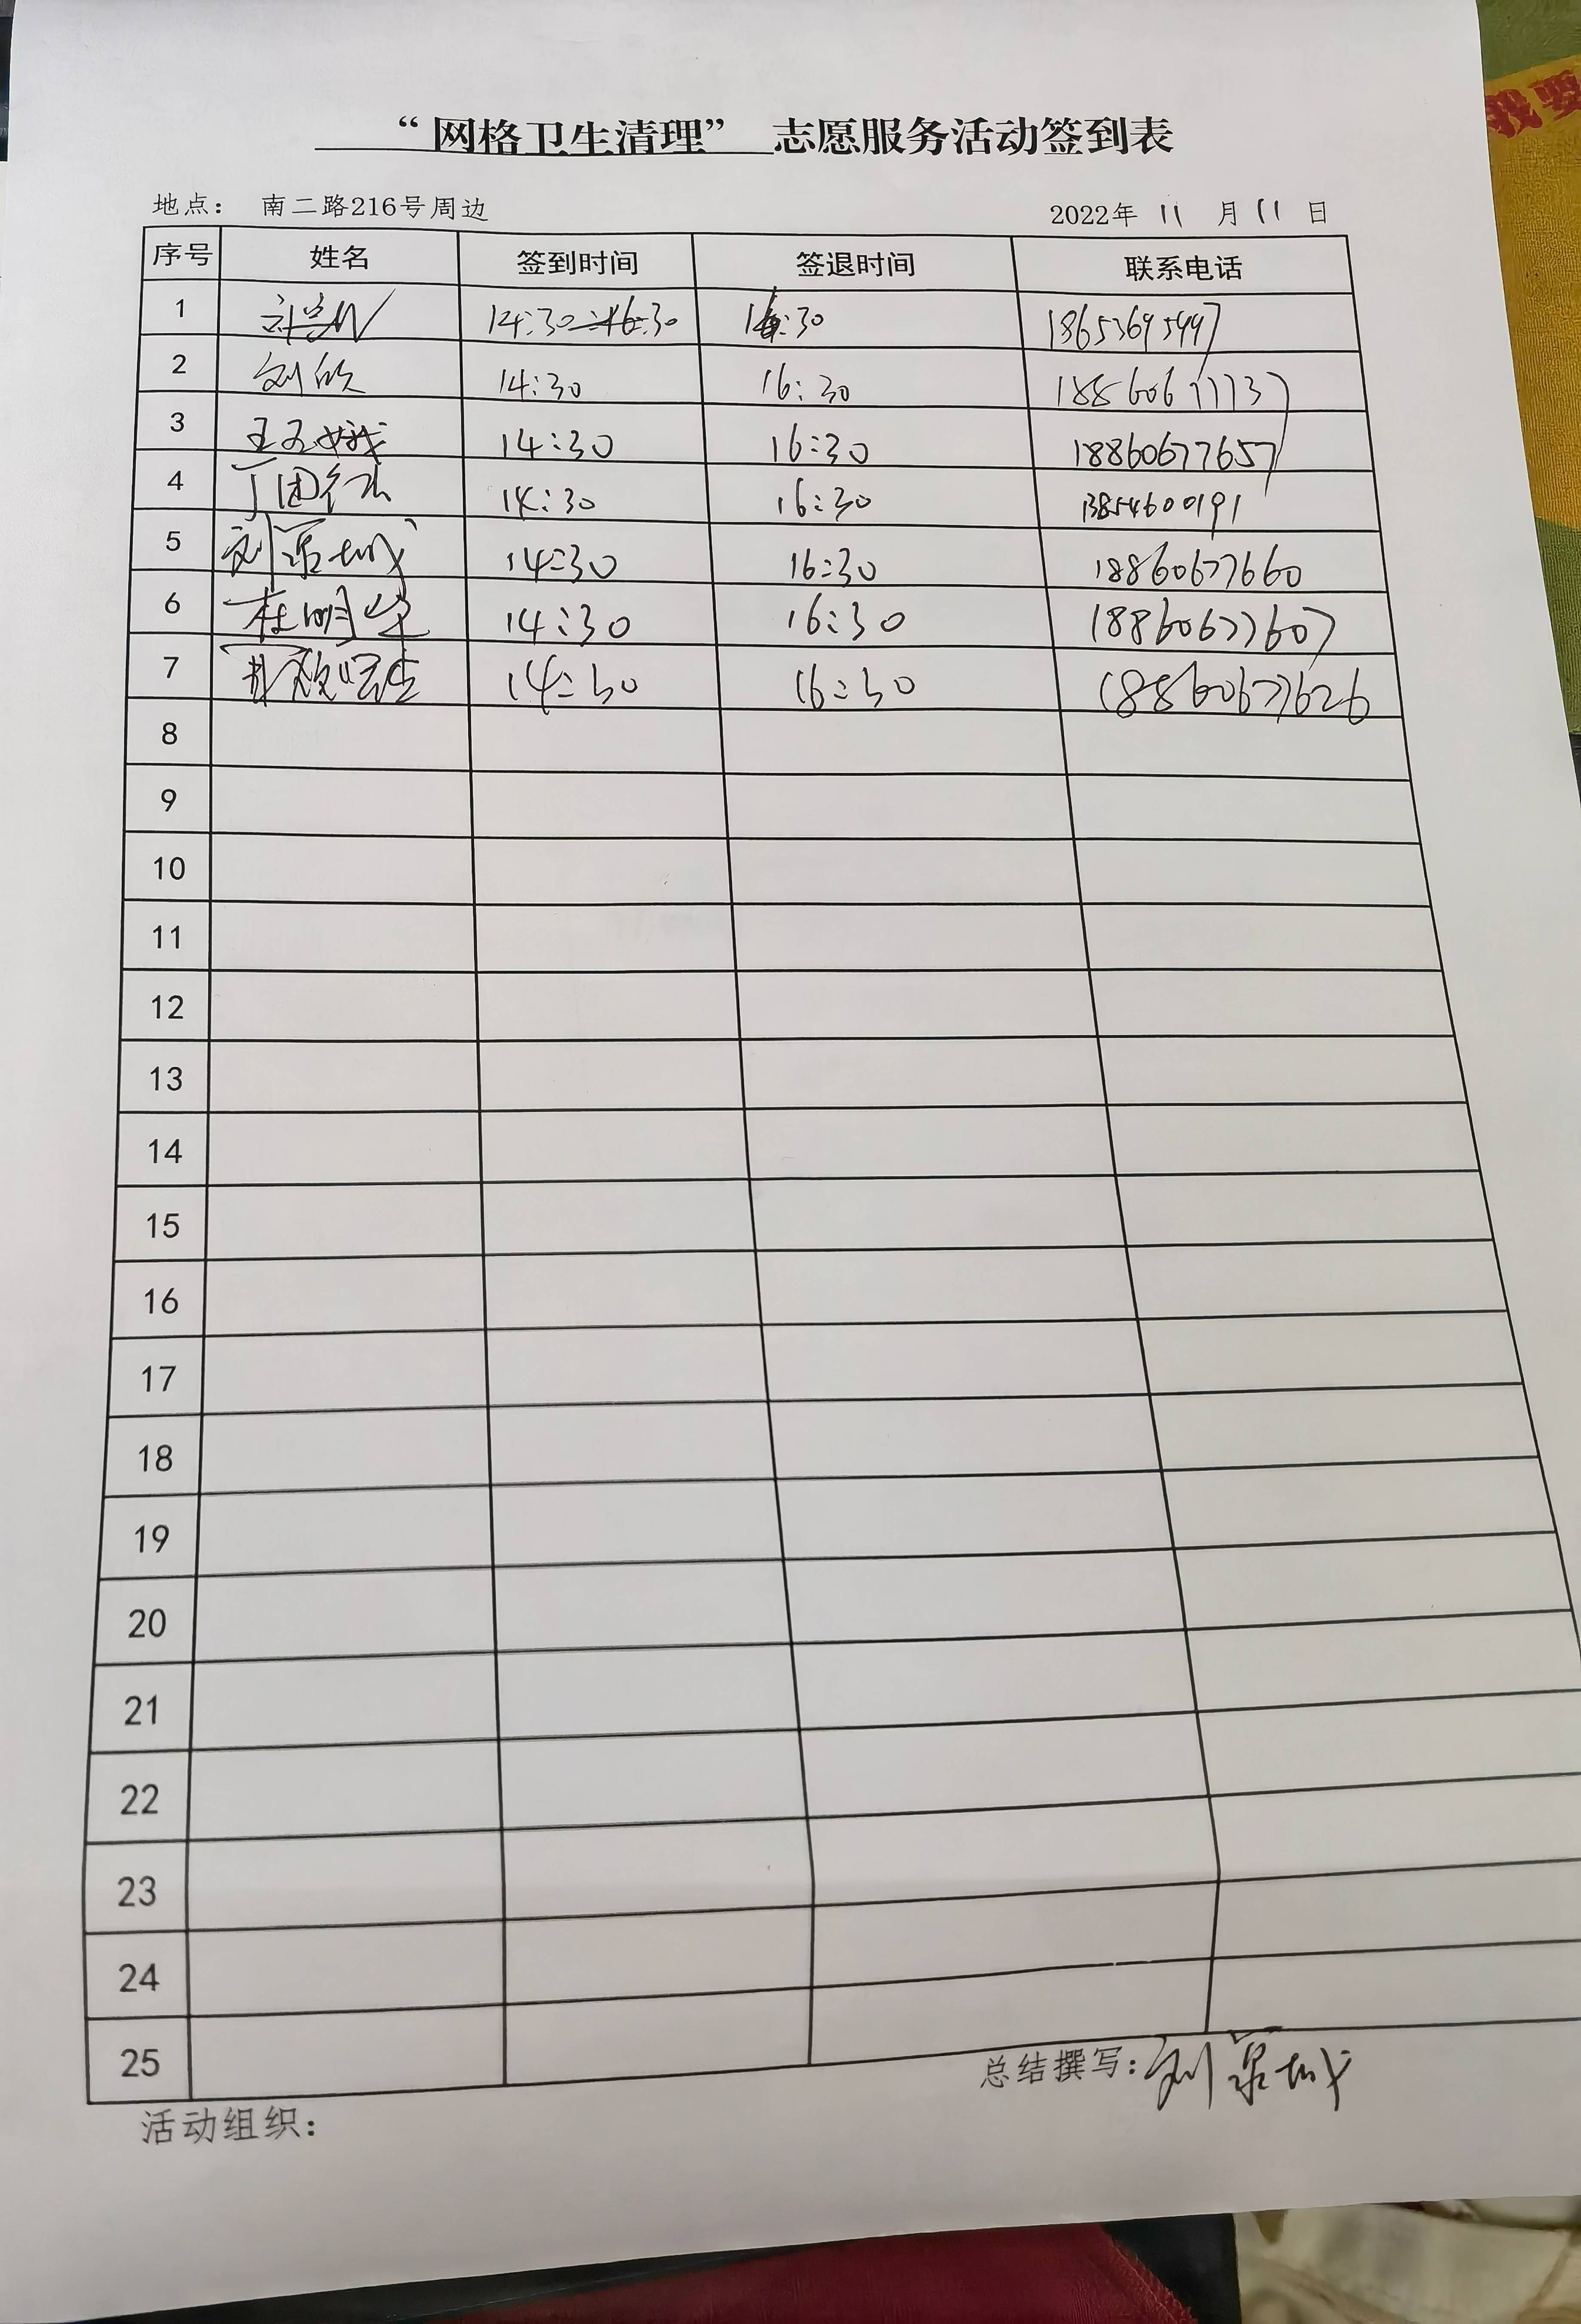 “网格卫生清理” 志愿服务活动签到表
地点： 南二路216号周边 2022年 11 月 11 日
序号 姓名 签到时间 签退时间 联系电话
1 14:30 16:30 18653695447
2 刘欣 14:30 16:30 18860677737
3 王玉娥 14:30 16:30 18860677657
4 14:30 16:30 13854600191
5 14:30 16:30 18860677660
6 杜明华 14:30 16:30 18860677607
7 14:30 16:30 18860677626
8
9
10
11
12
13
14
15
16
17
18
19
20
21
22
23
24
25
总结撰写：刘景城
活动组织：
我要